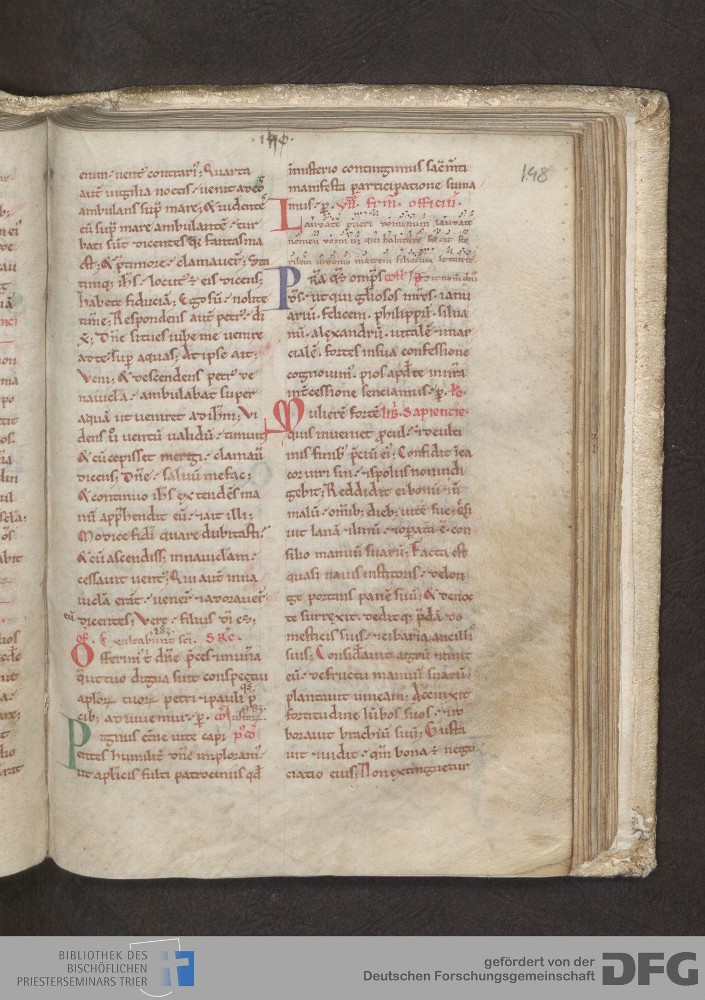 198
enim uent contrari; Quarta
aut uigilia noctis uenit ad eos
ambulans sup mare; & uidentes
eu sup mare ambulante tur
bati sunt dicentes quia fantasma
est; & p timore clamauer; Sta
timq; ihs locut e eis dicens;
habete fiducia; Ego su nolite
time; Respondens aut petr di
x; Dne si tu es iube me uenire
ad te sup aquas; At ipse ait;
Veni; & descendens petr de
nauicla ambulabat super
aqua ut ueniret ad ihm; Vi
dens u uentu ualidu timuit
& cu cepisset mergi clamau
dicens; Dne saluu me fac;
& continuo ihs extendes ma
nu apphendit eu & ait illi;
Modice fidi quare dubitasti;
& cu ascendiss in nauiclam
cessauit uent; Qui aut in na
uicla erat uener & adorauer
eu dicentes; Vere filius di es;
Of. Exultabunt sci. SEC.
Offerim t dne pces
que tuo digna sint conspectu
aplor tuor petri & pauli
cib; adiuuemur. p.
pignus etne uite capi
entes humilit dne imploram
ut aplicis fulti patrociniis qd
imisterio contingimus
manifesta participatione suma
mus. p. VII frm officiu.
Laudate pueri dominum laudate
nomen domini qui habitare facit ste
rilem in domo matrem filiorum letante
Psta qs omps
ds ut qui gliosos mres ianu
ariu. felicem. philippu. silua
nu. alexandru. uitale & mar
ciale. fortes in sua confessione
cognouim. pios apd te in nra
intcessione senciamus. p.
Muliere forte lib. Sapientie.
quis inueniet pcul & de ulti
mis finib pciu ei; Confidit in ea
cor uiri sui & spoliis non indi
gebit; Reddidit ei bonu & n
malu omib; dieb; uite sue; Qsi
uit lana & linu & opata e con
silio manuu suaru; Facta est
quasi nauis institoris de lon
ge portans pane suu; & de noc
te surrexit deditq; pda do
mesticis suis & cibaria ancillis
suis; Considauit agru & emit
eu de fructu manuu suaru
plantauit uineam; Accinxit
fortitudine lubos suos & ro
borauit brachiu suu; Gusta
uit & uidit qm bona e nego
ciatio eius; Non extinguetur
BIBLIOTHEK DES
BISCHÖFLICHEN
PRIESTERSEMINARS TRIER
gefördert von der
Deutschen Forschungsgemeinschaft
DFG